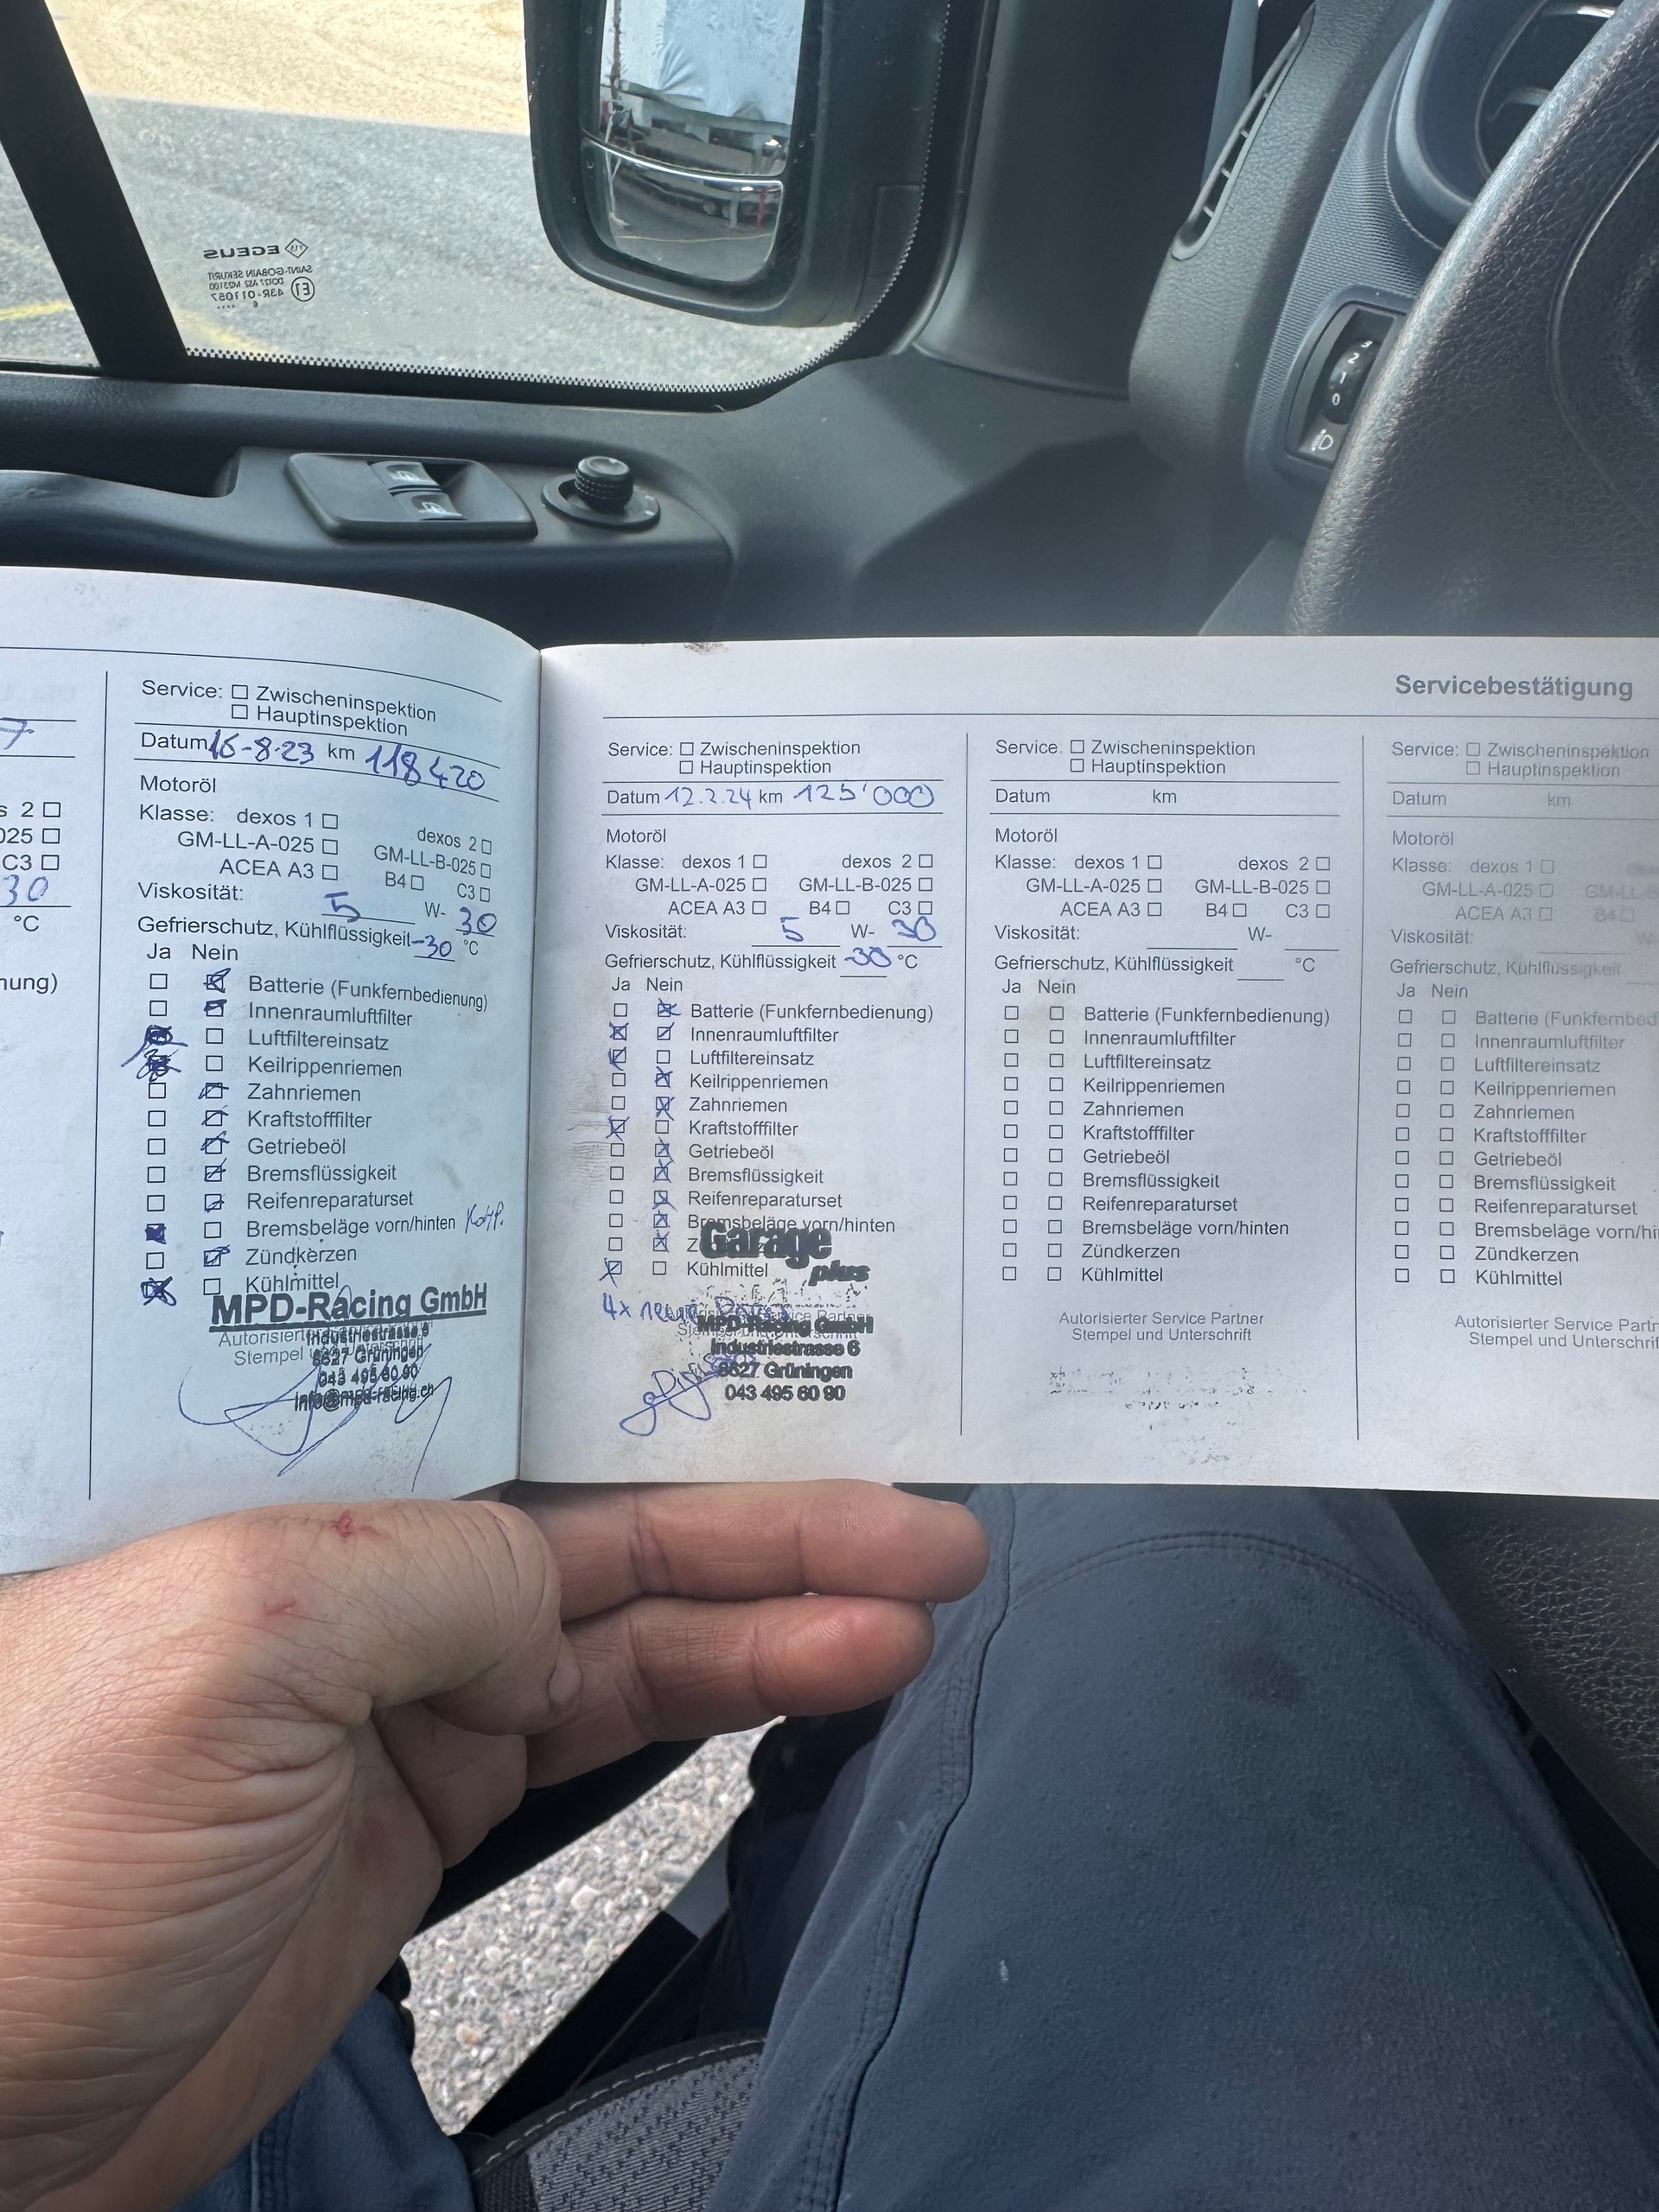 EGEUS
SAINT-GOBAIN SEKURIT
43R-011067
E1
3
2
1
0
7
s 2 ☐
025 ☐
C3 ☐
30
°C
nung)
Service: ☐ Zwischeninspektion
☐ Hauptinspektion
Datum 16-8-23 km 118420
Motoröl
Klasse: dexos 1 ☐ dexos 2 ☐
GM-LL-A-025 ☐ GM-LL-B-025 ☐
ACEA A3 ☐ B4 ☐ C3 ☐
Viskosität: 5 W- 30
Gefrierschutz, Kühlflüssigkeit -30 °C
Ja Nein
Batterie (Funkfernbedienung)
Innenraumluftfilter
Luftfiltereinsatz
Keilrippenriemen
Zahnriemen
Kraftstofffilter
Getriebeöl
Bremsflüssigkeit
Reifenreparaturset
Bremsbeläge vorn/hinten
Zündkerzen
Kühlmittel
MPD-Racing GmbH
Autorisierter
Industriestrasse 6
Stempel
8627 Grüningen
043 495 60 90
info@mpd-racing.ch
Servicebestätigung
Service: ☐ Zwischeninspektion
☐ Hauptinspektion
Datum 12.2.24 km 125'000
Motoröl
Klasse: dexos 1 ☐ dexos 2 ☐
GM-LL-A-025 ☐ GM-LL-B-025 ☐
ACEA A3 ☐ B4 ☐ C3 ☐
Viskosität: 5 W- 30
Gefrierschutz, Kühlflüssigkeit -30 °C
Ja Nein
Batterie (Funkfernbedienung)
Innenraumluftfilter
Luftfiltereinsatz
Keilrippenriemen
Zahnriemen
Kraftstofffilter
Getriebeöl
Bremsflüssigkeit
Reifenreparaturset
Bremsbeläge vorn/hinten
Garage
plus
Kühlmittel
4x
Service Partner
MPD-Racing GmbH
Industriestrasse 6
8627 Grüningen
043 495 60 90
Service: ☐ Zwischeninspektion
☐ Hauptinspektion
Datum km
Motoröl
Klasse: dexos 1 ☐ dexos 2 ☐
GM-LL-A-025 ☐ GM-LL-B-025 ☐
ACEA A3 ☐ B4 ☐ C3 ☐
Viskosität: W-
Gefrierschutz, Kühlflüssigkeit °C
Ja Nein
☐ ☐ Batterie (Funkfernbedienung)
☐ ☐ Innenraumluftfilter
☐ ☐ Luftfiltereinsatz
☐ ☐ Keilrippenriemen
☐ ☐ Zahnriemen
☐ ☐ Kraftstofffilter
☐ ☐ Getriebeöl
☐ ☐ Bremsflüssigkeit
☐ ☐ Reifenreparaturset
☐ ☐ Bremsbeläge vorn/hinten
☐ ☐ Zündkerzen
☐ ☐ Kühlmittel
Autorisierter Service Partner
Stempel und Unterschrift
Service: ☐ Zwischeninspektion
☐ Hauptinspektion
Datum km
Motoröl
Klasse: dexos 1 ☐
GM-LL-A-025 ☐ GM-LL-B
ACEA A3 ☐ B4 ☐
Viskosität:
Gefrierschutz, Kühlflüssigkeit
Ja Nein
☐ ☐ Batterie (Funkfernbed
☐ ☐ Innenraumluftfilter
☐ ☐ Luftfiltereinsatz
☐ ☐ Keilrippenriemen
☐ ☐ Zahnriemen
☐ ☐ Kraftstofffilter
☐ ☐ Getriebeöl
☐ ☐ Bremsflüssigkeit
☐ ☐ Reifenreparaturset
☐ ☐ Bremsbeläge vorn/hi
☐ ☐ Zündkerzen
☐ ☐ Kühlmittel
Autorisierter Service Partn
Stempel und Unterschrif